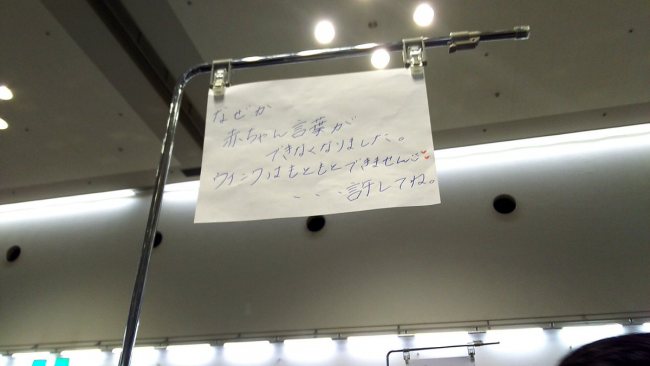 なぜか
赤ちゃん言葉が
できなくなりました。
ウインクはもともとできません
、、、許してね。